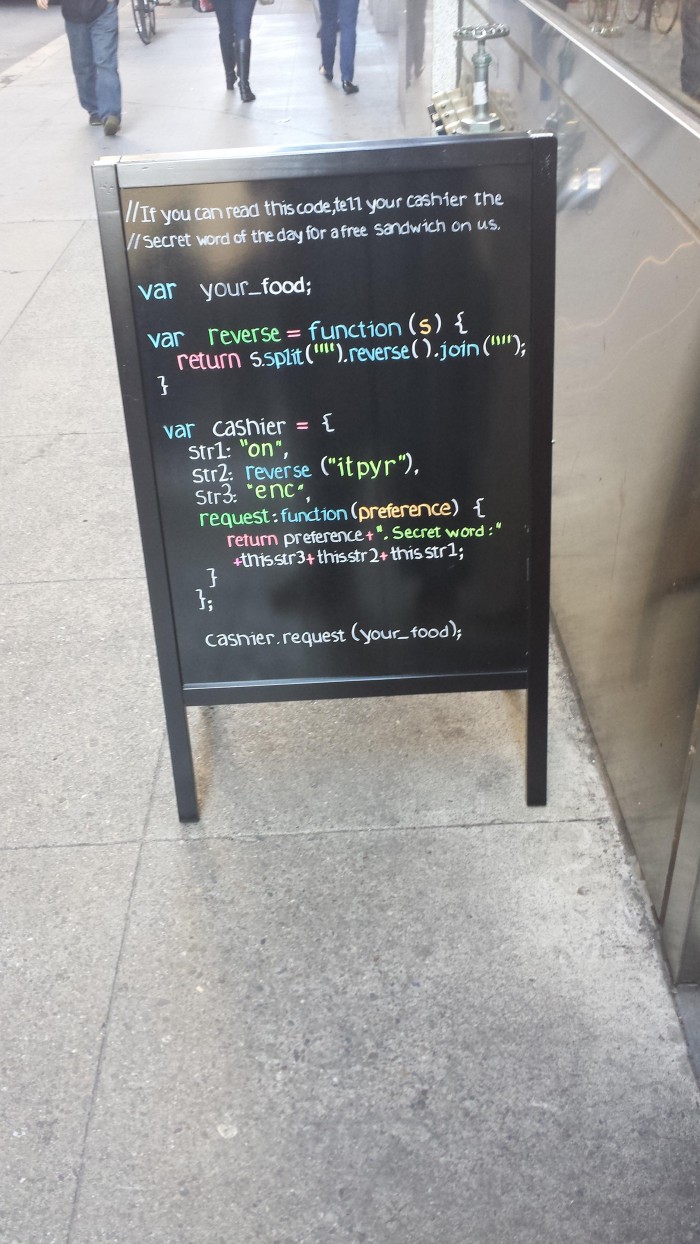 //If you can read this code,tell your cashier the
//Secret word of the day for a free sandwich on us.
var your_food;
var reverse = function (s) {
return s.split("").reverse().join("");
}
var cashier = {
str1: "on",
str2: reverse ("itpyr"),
str3: "enc",
request:function(preference) {
return preference+". Secret word:"
+this.str3+this.str2+this.str1;
}
};
cashier.request (your_food);